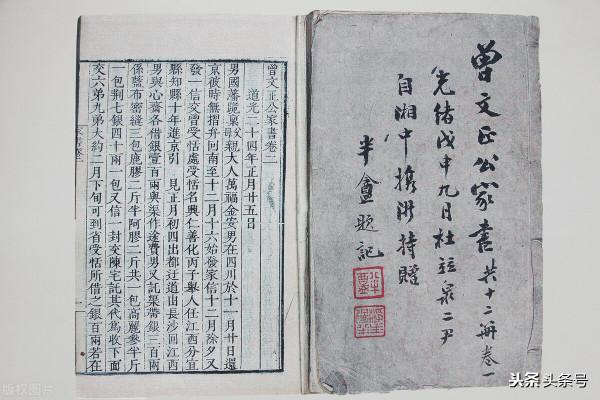 曾文正公家書共十二冊卷一
光緒戊申九日杜竝泉二尹
自湘中携浙持贈
半盦題記
曾文正公家書卷二
道光二十四年正月廿五日
男國藩跪稟父母親大人萬福金安男在四川於十一月廿日還
京彼時無摺弁回南至十二月十六始發家信十二月除夕又
發一信交曾受恬處受恬名興仁善化丙子舉人任江西分宜
縣知縣十年進京引 見正月初四出都迂道由長沙回江西
男與心齋各借銀壹百兩與渠作途費男又託渠帶銀三百兩
係藍布密縫三包鹿膠二斤半阿膠二斤共一包高麗參半斤
一包荊七銀四十兩一包又信一封交陳宅託其代為收下面
交六弟九弟大約二月下旬可到省受恬所借之銀百兩若在
版权图片
头条 头条号